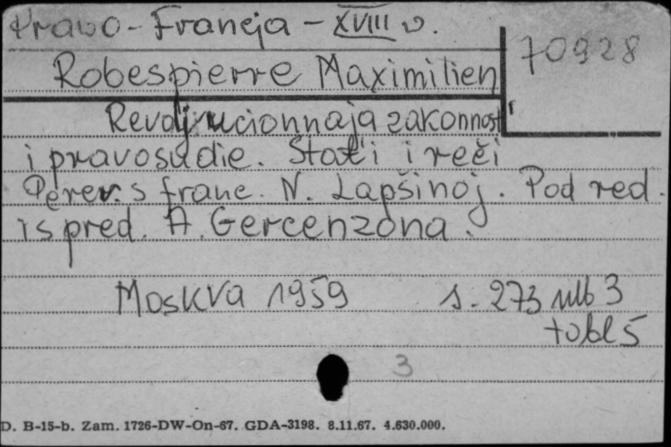 Prawo - Francja - XVIII w.
70928
Robespierre Maximilien
Revoljucionnaja zakonnost'
i pravosudie. Stat'i i reči
Perev. s franc. N. Lapšinoj. Pod red.
i s pred. A. Gercenzona.
Moskva 1959 s. 273 nlb 3
tabl 5
3
D. B-15-b. Zam. 1726-DW-On-67. GDA-3198. 8.11.67. 4.630.000.